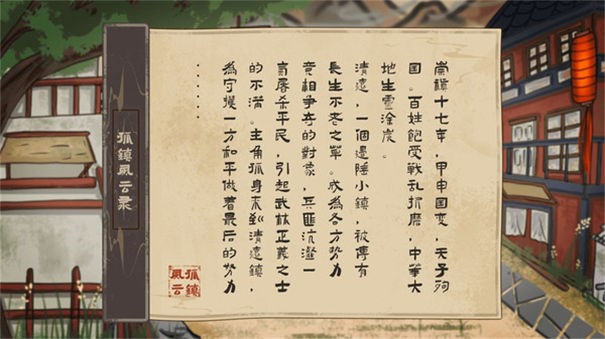 崇禎十七年，甲申国变，天子殉
国。百姓饱受戰乱折磨，中華大
地生靈涂炭。
清遠，一個邊陲小鎮，被傳有
長生不老之草。成為各方势力
竞相争夺的對象，兵匪沆瀣一
氣屠杀平民，引起武林正義之士
的不满。主角孤身来到清遠鎮，
為守護一方和平做着最后的努力
......
孤鎮風云录
孤鎮
風云